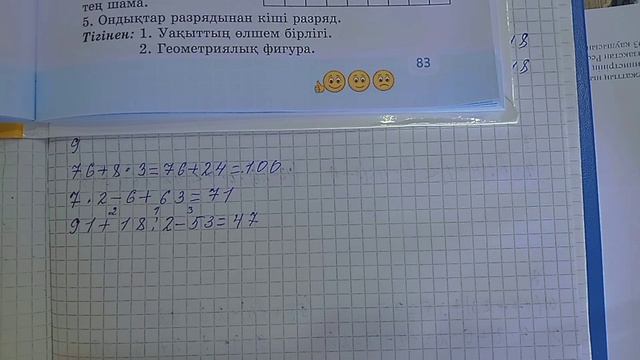 тең шама.
5. Ондықтар разрядынан кіші разряд.
Тігінен: 1. Уақыттың өлшем бірлігі.
2. Геометриялық фигура.
83
18
18
9
76+8·3=76+24=100.
7·2-6+63=71
2 1 3
91+18:2-53=47